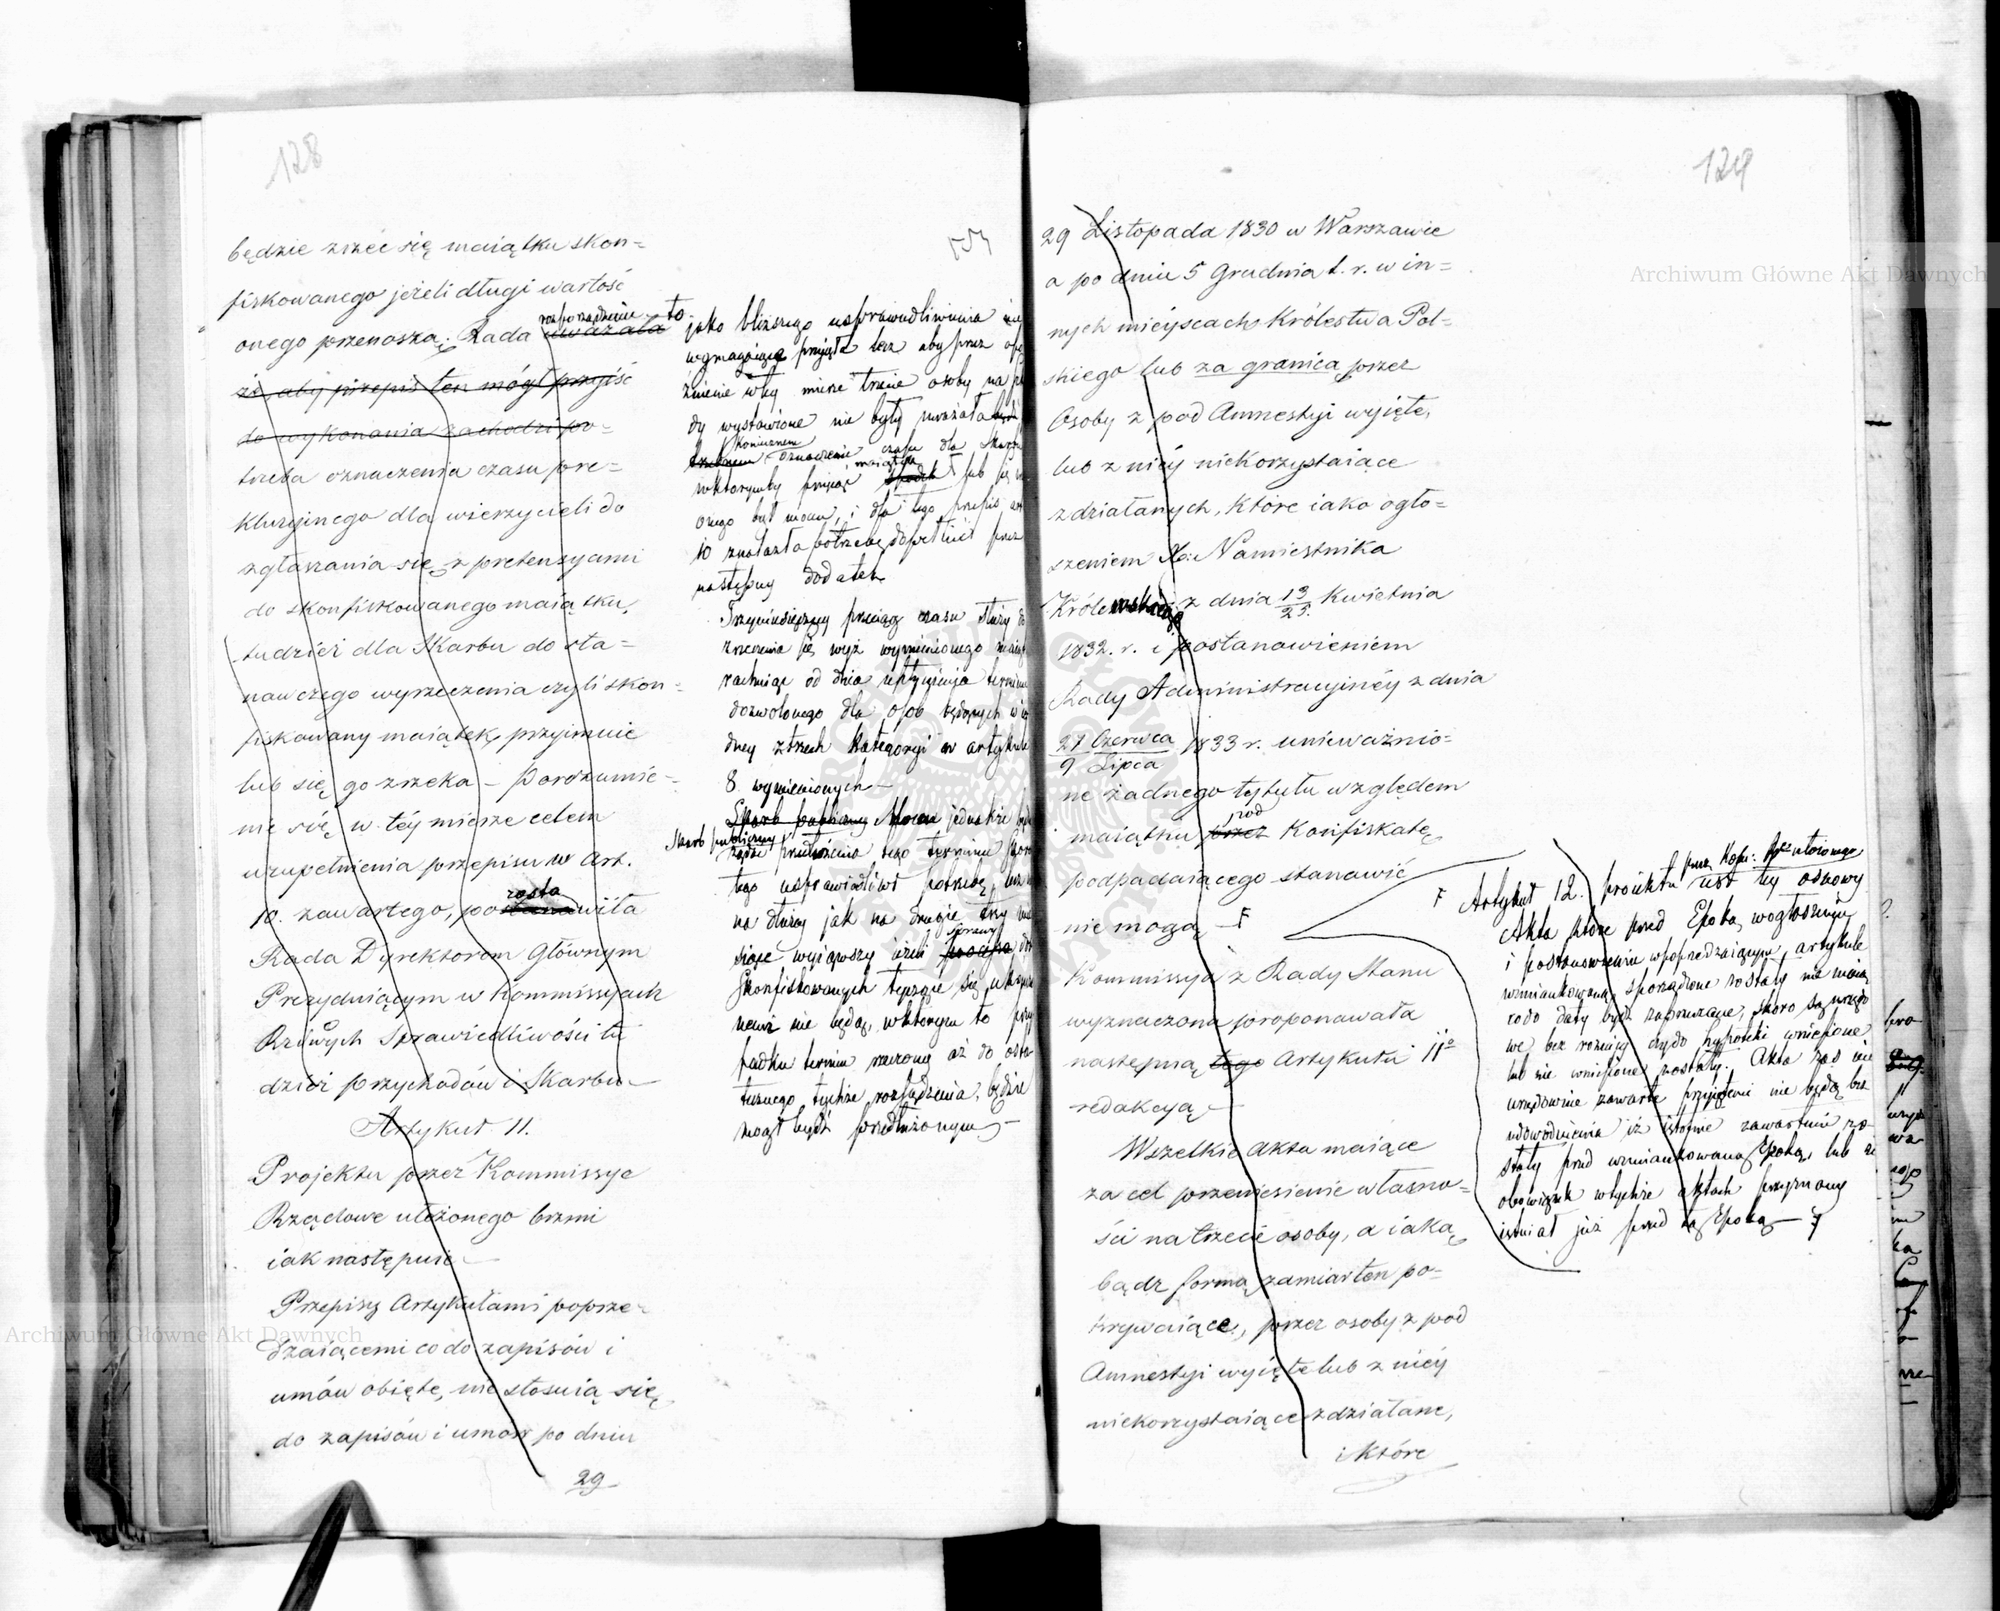 128
będzie zrzec się maiątku skon=
fiskowanego jeżeli długi wartość
onego przenoszą. Rada rozporządzenie to
uważała
że aby przepis ten mógł przyjść
do wykonania zachodzi po=
trzeba oznaczenia czasu pre=
kluzyjnego dla wierzycieli do
zgłaszania się z pretensyami
do skonfiskowanego maiątku,
tudzież dla Skarbu do sta=
nowczego wyrzeczenia czyli skon=
fiskowany maiątek przyimuie
lub się go zrzeka – Porozumie=
nie się w téy mierze celem
uzupełnienia przepisu w Art.
10. zawartego, postanowiła
zosta
Rada Dyrektorom Głównym
Prezyduiącym w Kommissyach
Rzdwych Sprawiedliwości tu
dzież przychodów i Skarbu –
Artykuł 11.
Projektu przez Kommissye
Rządowe ułożonego brzmi
iak następuie –
Przepisy Artykułami poprze=
dzaiącemi co do zapisów i
umów obięte, nie stosuią się
do zapisów i umów po dniu
29
jako bliższego usprawiedliwienia nie
wymagaiące przyięła lecz aby przez
w téy mierze trzecie osoby na
dy wystawione nie były uważała
koniecznem oznaczenie czasu dla Skarbu
w którymby przyiąć maiątek lub
onego był mocen, i dla tego przepis
10 znalazła potrzebę dopełnić przez
następny dodatek
Trzymiesięczny przeciąg czasu służy do
zrzeczenia się wyż wymienionego
rachuiąc od dnia upłynienia terminu
dozwolonego dla osób będących w
dney z trzech kategoryi w artykule
8 wymienionych –
Skarb publiczny Mocen jednakże
Skarb publiczny
żądać przedłużenia tego terminu skoro
tego usprawiedliwi potrzebę,
na dłużey jak na drugie trzy mie
siące wyiąwszy ieżeli sprawy
Skonfiskowanych tyczące się ukończo
nemi nie będą, w którym to przy
padku termin rzeczony aż do osta
tecznego tychże rozsądzenia, będzie
mógł bydź przedłużonym –
129
29 Listopada 1830 w Warszawie
a po dniu 5 Grudnia t. r. w in=
nych mieyscach Królestwa Pol=
skiego lub za granicą przez
Osoby z pod Amnestyi wyięte,
lub z niéy niekorzystaiące
zdziałanych, które iako ogło=
szeniem Xa: Namiestnika
Królewskiego z dnia 13/25. Kwietnia
1832. r. i postanowieniem
Rady Administracyjnéy z dnia
27 Czerwca / 9 Lipca 1833 r. unieważnio=
ne żadnego tytułu względem
maiątku przez Konfiskatę
pod
podpadaiącego stanowić
nie mogą – F
Kommissya z Rady Stanu
wyznaczona proponowała
następną tego Artykułu 11o
redakcyą –
Wszelkie akta maiące
za cel przeniesienie własno=
ści na trzecie osoby, a iaką
bądz formą zamiar ten po=
krywaiące, przez osoby z pod
Amnestyi wyięte lub z niéy
niekorzystaiące zdziałane,
które
F Artykuł 12. proiektu przez Kom: ułożonego
iest téy osnowy
Akta które przed Epoką w ogłoszeniu
i postanowieniu w poprzedzaiącym artykule
wzmiankowaną sporządzone zostały nie maią
co do daty bydź zaprzeczane, skoro są urzędo
we bez różnicy czy do hypoteki wniesione
lub nie wniesione zostały. Akta zaś nie
urzędownie zawarte przyięte nie będą bez
udowodnienia iż istotnie zawartemi zo
stały przed wzmiankowaną Epoką, lub że
obowiązek w tychże aktach przyznany
istniał już przed tą Epoką –
Archiwum Główne Akt Dawnych
Archiwum Główne Akt Dawnych